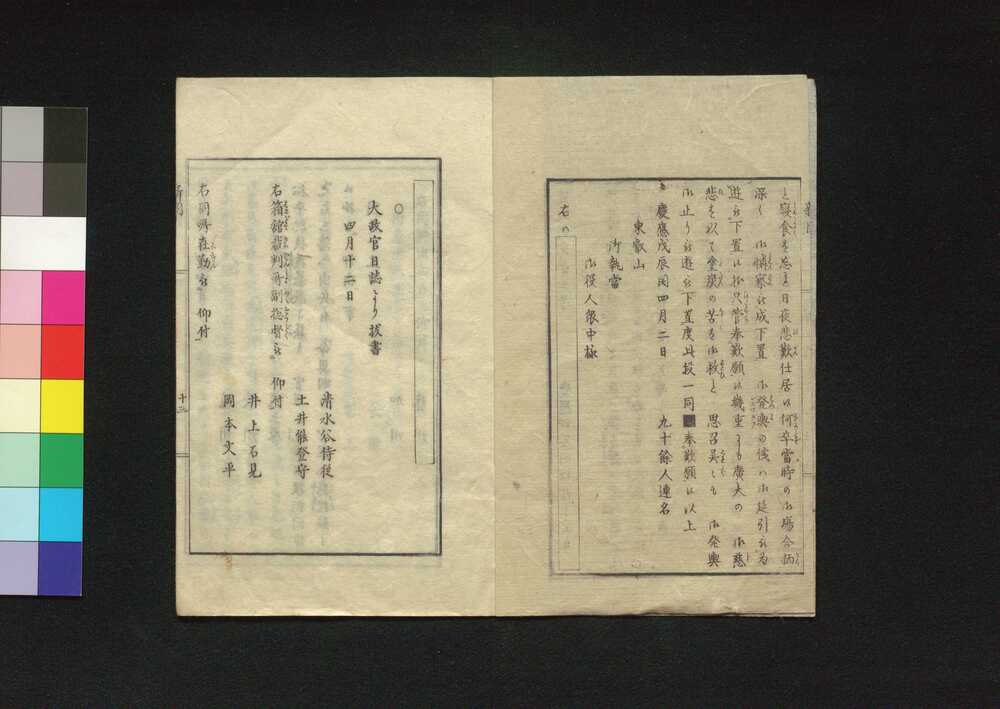 と寝食を忘き日夜悲歎仕居候何卒当時の御場合柄
深く 御憐察被成下置 御発輿の儀ハ御延引被為
遊被下置候様只管奉歎願候幾重にも広大の 御慈
悲を以て塗炭の苦を御救と 思召呉々も 御発輿
御止り被遊被下置度此段一同 奉歎願候以上
慶應戊辰閏四月二日 九十餘人連名
東叡山
御執當
御役人衆中様
右ハ
○
大政官日誌より抜書
四月十二日
清水谷侍従
土井能登守
右箱舘裁判所副総督被 仰付
井上石見
岡本文平
右同所在勤被 仰付
十三